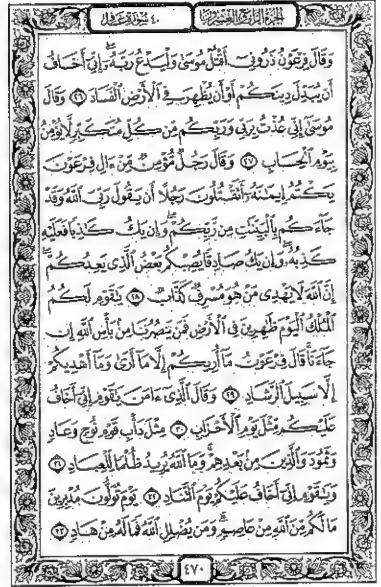 الجزء الرابع والعشرون
٤٠ سورة غافر
وَقَالَ فِرْعَوْنُ ذَرُونِىٓ أَقْتُلْ مُوسَىٰ وَلْيَدْعُ رَبَّهُۥٓ إِنِّىٓ أَخَافُ
أَن يُبَدِّلَ دِينَكُمْ أَوْ أَن يُظْهِرَ فِى ٱلْأَرْضِ ٱلْفَسَادَ ٢٦ وَقَالَ
مُوسَىٰٓ إِنِّى عُذْتُ بِرَبِّى وَرَبِّكُم مِّن كُلِّ مُتَكَبِّرٍ لَّا يُؤْمِنُ
بِيَوْمِ ٱلْحِسَابِ ٢٧ وَقَالَ رَجُلٌ مُّؤْمِنٌ مِّنْ ءَالِ فِرْعَوْنَ
يَكْتُمُ إِيمَٰنَهُۥٓ أَتَقْتُلُونَ رَجُلًا أَن يَقُولَ رَبِّىَ ٱللَّهُ وَقَدْ
جَآءَكُم بِٱلْبَيِّنَٰتِ مِن رَّبِّكُمْ ۖ وَإِن يَكُ كَٰذِبًا فَعَلَيْهِ
كَذِبُهُۥ ۖ وَإِن يَكُ صَادِقًا يُصِبْكُم بَعْضُ ٱلَّذِى يَعِدُكُمْ ۖ
إِنَّ ٱللَّهَ لَا يَهْدِى مَنْ هُوَ مُسْرِفٌ كَذَّابٌ ٢٨ يَٰقَوْمِ لَكُمُ
ٱلْمُلْكُ ٱلْيَوْمَ ظَٰهِرِينَ فِى ٱلْأَرْضِ فَمَن يَنصُرُنَا مِنۢ بَأْسِ ٱللَّهِ إِن
جَآءَنَا ۚ قَالَ فِرْعَوْنُ مَآ أُرِيكُمْ إِلَّا مَآ أَرَىٰ وَمَآ أَهْدِيكُمْ
إِلَّا سَبِيلَ ٱلرَّشَادِ ٢٩ وَقَالَ ٱلَّذِىٓ ءَامَنَ يَٰقَوْمِ إِنِّىٓ أَخَافُ
عَلَيْكُم مِّثْلَ يَوْمِ ٱلْأَحْزَابِ ٣٠ مِثْلَ دَأْبِ قَوْمِ نُوحٍ وَعَادٍ
وَثَمُودَ وَٱلَّذِينَ مِنۢ بَعْدِهِمْ ۚ وَمَا ٱللَّهُ يُرِيدُ ظُلْمًا لِّلْعِبَادِ ٣١
وَيَٰقَوْمِ إِنِّىٓ أَخَافُ عَلَيْكُمْ يَوْمَ ٱلتَّنَادِ ٣٢ يَوْمَ تُوَلُّونَ مُدْبِرِينَ
مَا لَكُم مِّنَ ٱللَّهِ مِنْ عَاصِمٍ ۗ وَمَن يُضْلِلِ ٱللَّهُ فَمَا لَهُۥ مِنْ هَادٍ ٣٣
٤٧٠